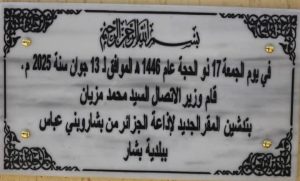 بسم الله الرحمن الرحيم
في يوم الجمعة 17 ذو الحجة عام 1446 ه الموافق لـ 13 جوان سنة 2025 م.
قام وزير الاتصال السيد محمد مزيان
بتدشين المقر الجديد لإذاعة الجزائر من بشار وبني عباس
ببلدية بشار